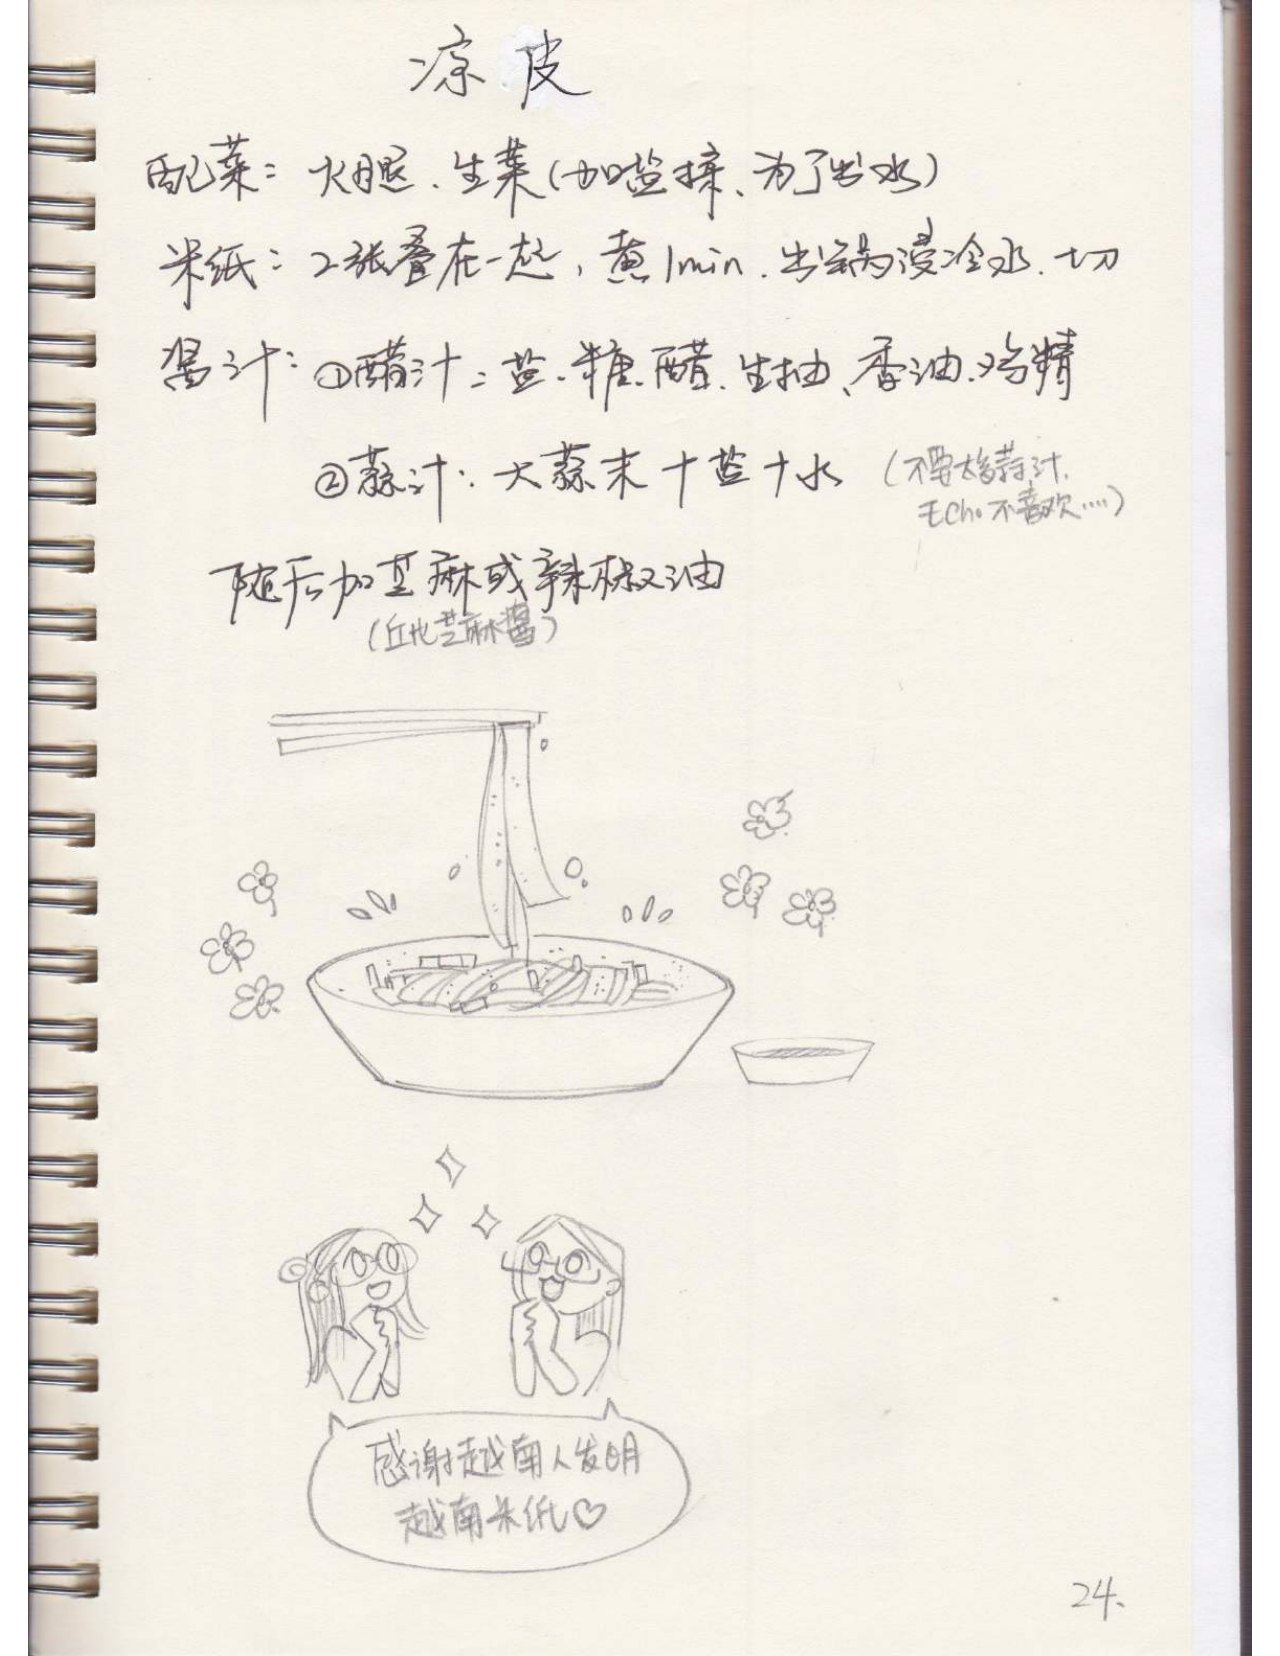 凉皮
配菜：火腿、生菜（加盐揉、为了出水）
米纸：2张叠在一起，煮1min、出锅浸冷水、切
酱汁：①醋汁：盐、糖、醋、生抽、香油、鸡精
②蒜汁：大蒜末+盐+水（不要太多蒜汁、
毛Cho不喜欢……）
随后加芝麻或辣椒油
（丘比芝麻酱）
感谢越南人发明
越南米纸♡
24、